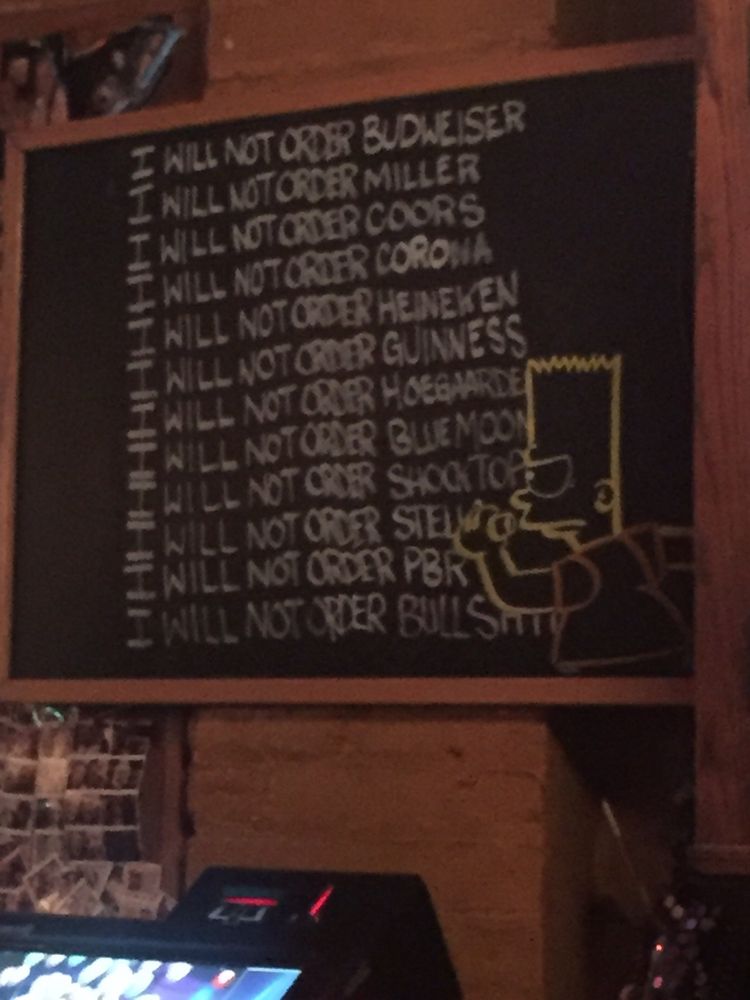 I WILL NOT ORDER BUDWEISER
I WILL NOT ORDER MILLER
I WILL NOT ORDER COORS
I WILL NOT ORDER CORONA
I WILL NOT ORDER HEINEKEN
I WILL NOT ORDER GUINNESS
I WILL NOT ORDER HOEGAARDE
I WILL NOT ORDER BLUE MOON
I WILL NOT ORDER SHOCKTOP
I WILL NOT ORDER STELL
I WILL NOT ORDER PBR
I WILL NOT ORDER BULLSHIT